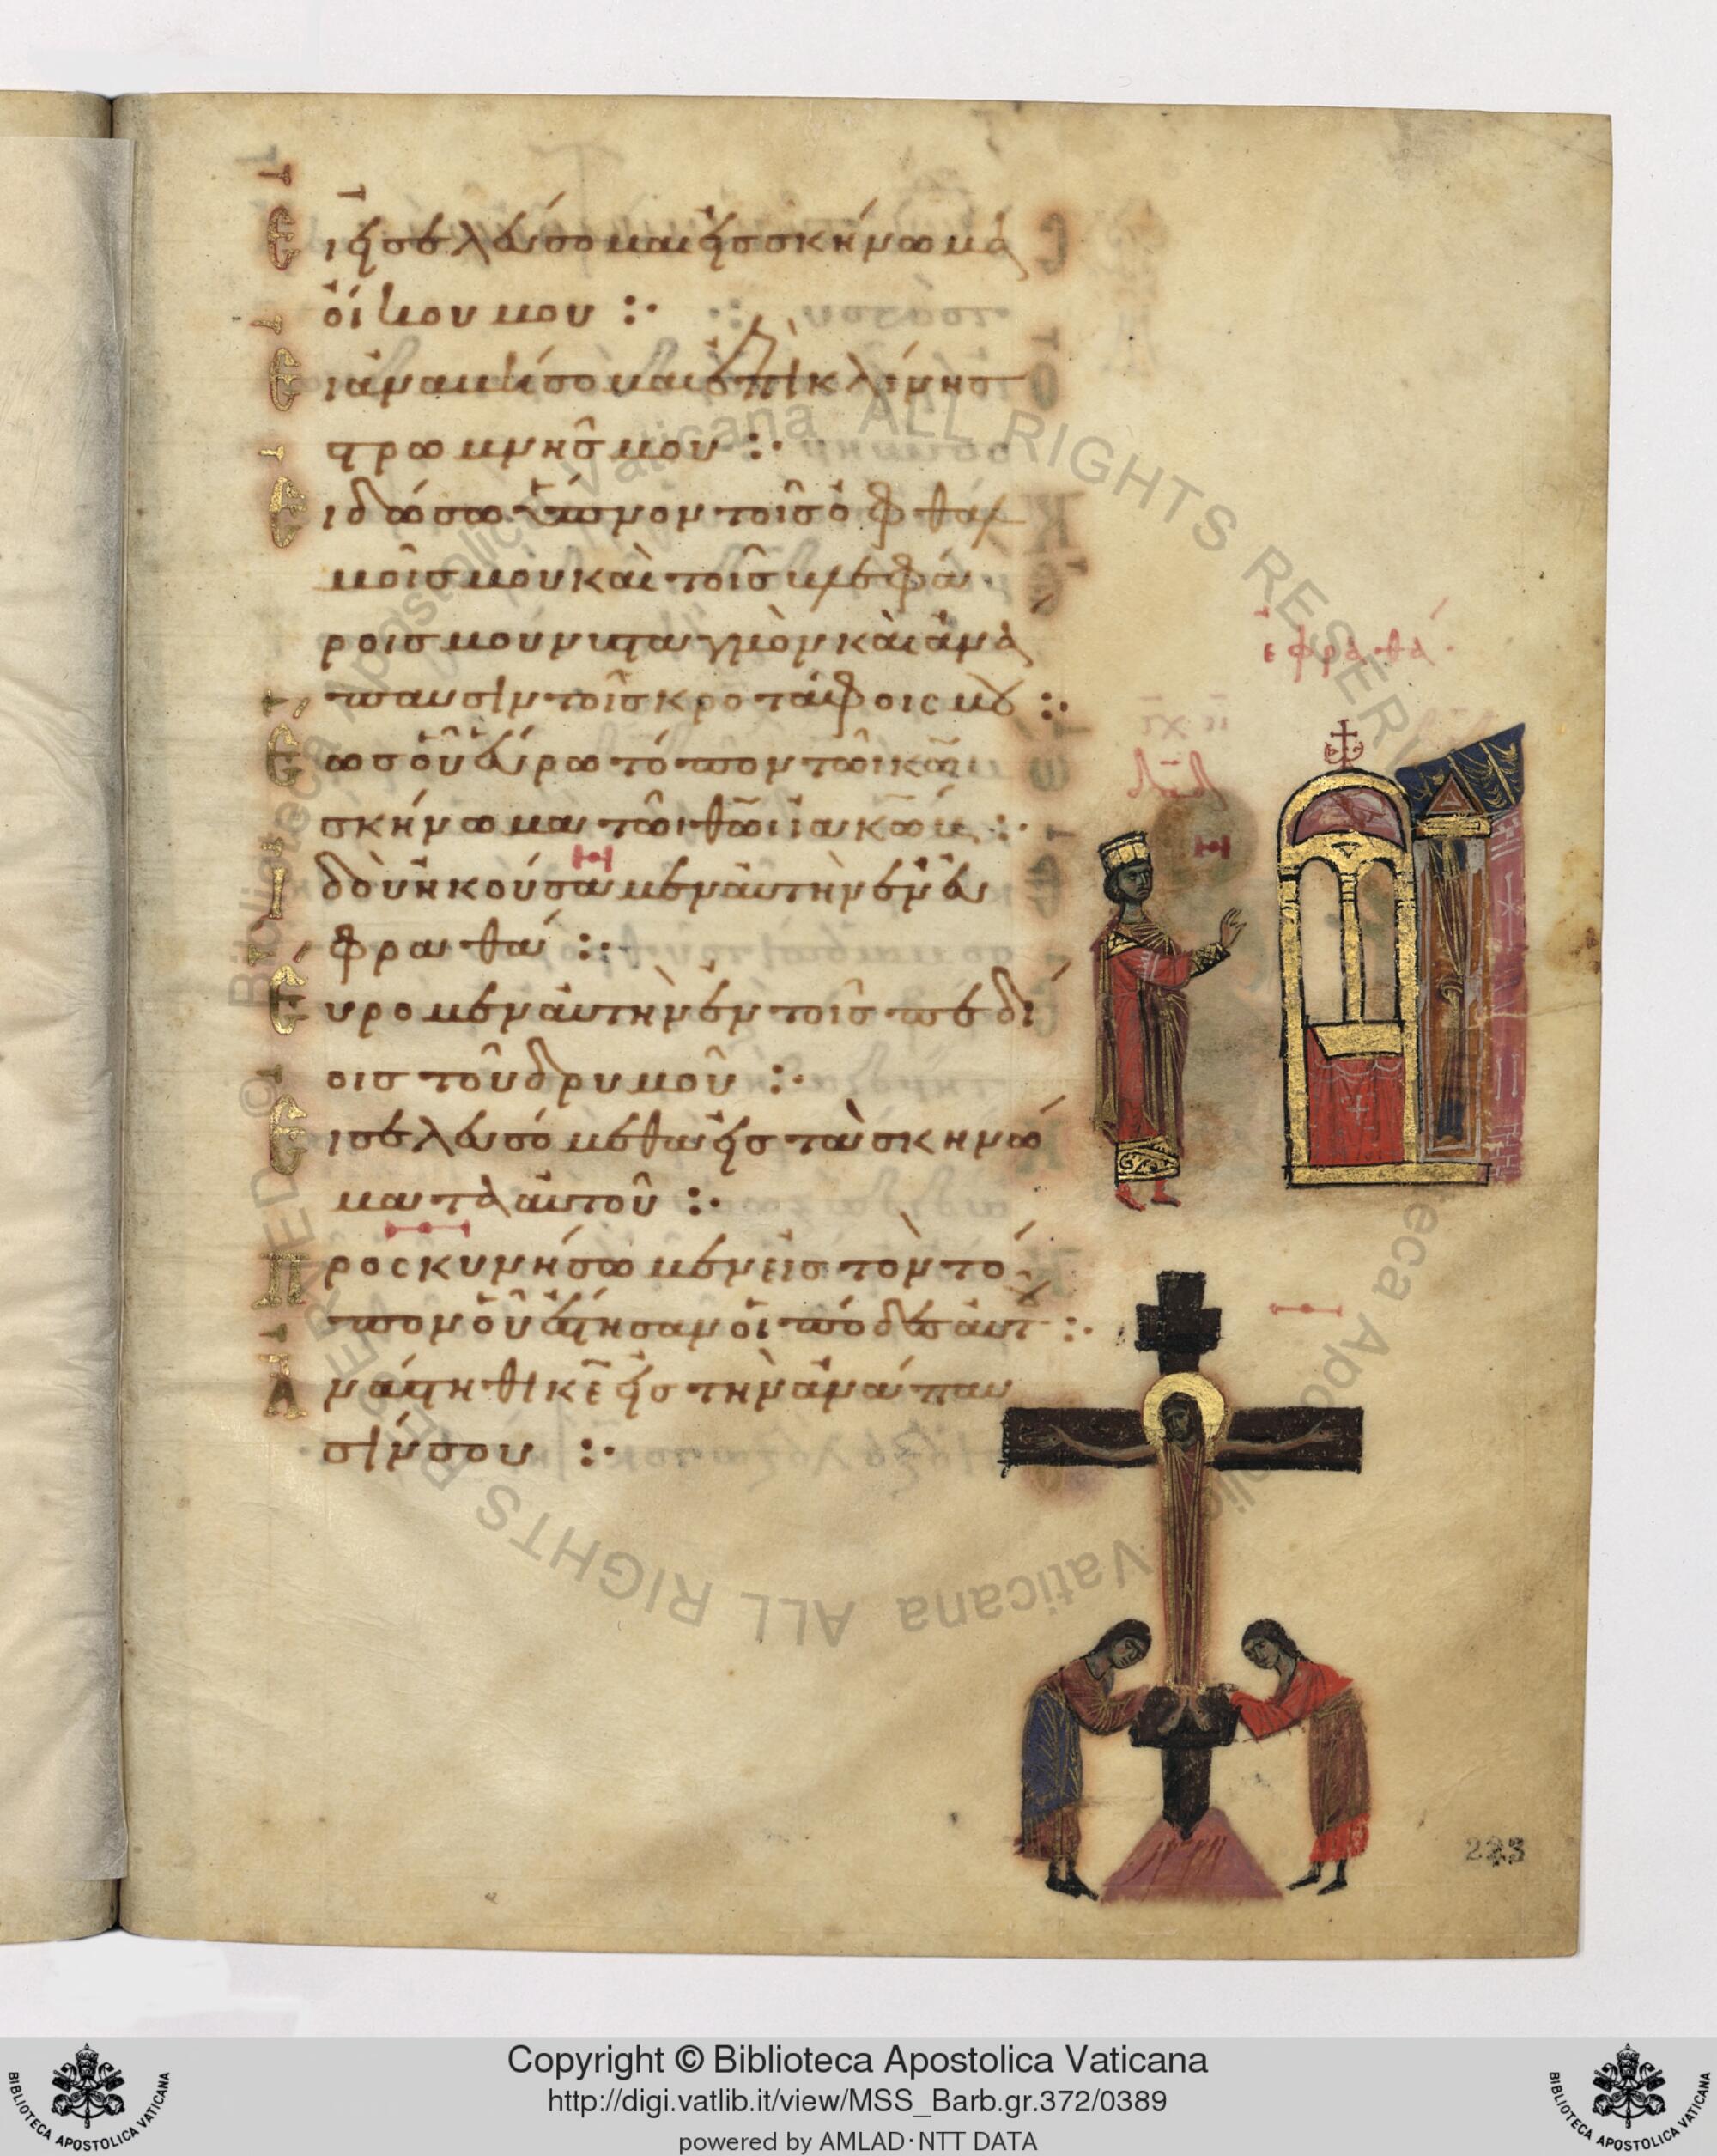 Εἰ εἰσελεύσομαι εἰς σκήνωμα
οἴκου μου :·
Εἰ ἀναβήσομαι ἐπὶ κλίνησ
στρωμνῆσ μου :·
Εἰ δώσω ὕπνον τοῖσ ὀφθαλ
μοῖσ μου καὶ τοῖσ βλεφά
ροισ μου νυσταγμὸν καὶ ἀνά
παυσιν τοῖσ κροτάφοις μου :·
Ἕωσ οὗ εὕρω τόπον τῶι κ̅ω̅ι
σκήνωμα τῶι θ̅ω̅ι ἰακώβ :·
Ἰδοὺ ἠκούσαμεν αὐτὴν ἐν εὐ
φραθά :·
Εὕρομεν αὐτὴν ἐν τοῖσ πεδί
οισ τοῦ δρυμοῦ :·
Εἰσελευσόμεθα εἰσ τὰ σκηνώ
ματα αὐτοῦ :·
Προσκυνήσωμεν εἰσ τὸν τό
πον οὗ ἔστησαν οἱ πόδεσ αὐτοῦ :·
Ἀνάστηθι κ̅ε̅ εἰσ τὴν ἀνάπαυ
σίν σου :·
ἐφραθά
δα̅δ
223
Copyright © Biblioteca Apostolica Vaticana
http://digi.vatlib.it/view/MSS_Barb.gr.372/0389
powered by AMLAD·NTT DATA
BIBLIOTECA APOSTOLICA VATICANA
BIBLIOTECA APOSTOLICA VATICANA
Biblioteca Apostolica Vaticana ALL RIGHTS RESERVED
Biblioteca Apostolica Vaticana ALL RIGHTS RESERVED ©